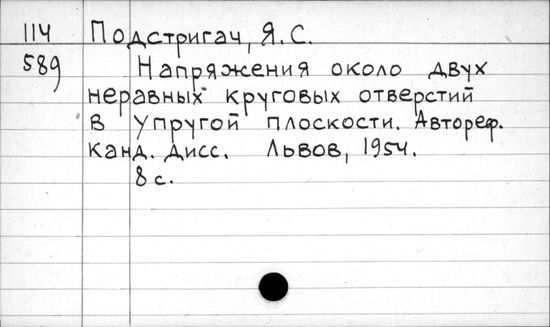 114 Подстригач, Я.С.
589 Напряжения около двух
неравных круговых отверстий
в упругой плоскости. Автореф.
канд. дисс. Львов, 1954.
8 с.